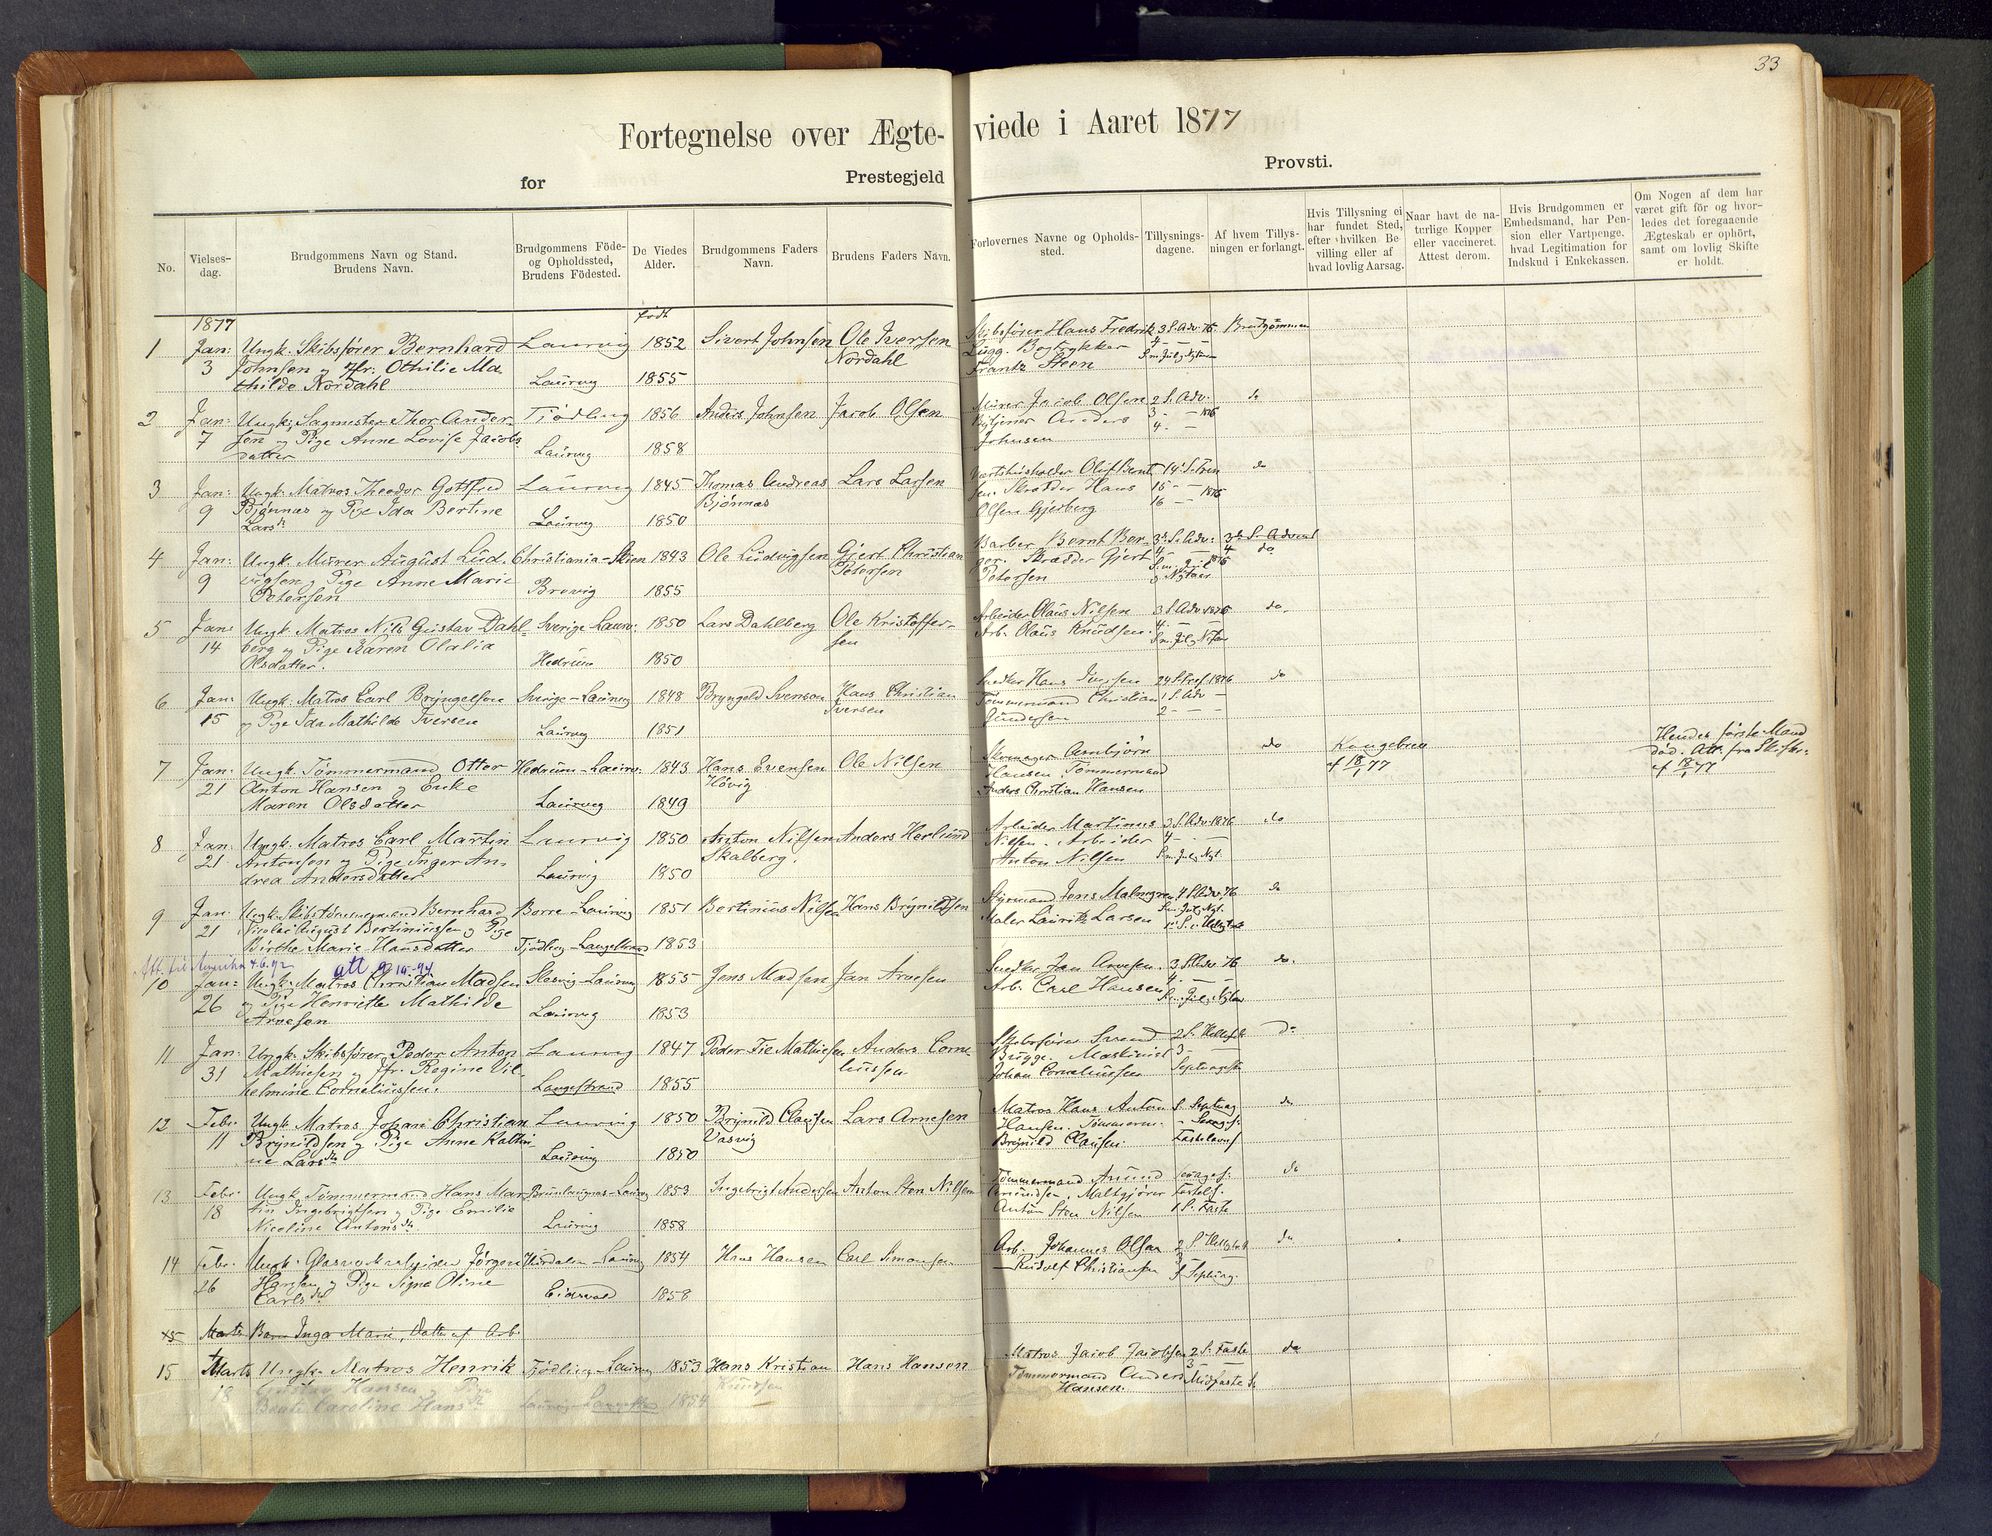 33
Fortegnelse over Ægteviede i Aaret 1877
for Prestegjeld Provsti.
No. Vielsesdag. Brudgommens Navn og Stand. Brudens Navn. Brudgommens Föde- og Opholdssted, Brudens Födested. De Viedes Alder. Brudgommens Faders Navn. Brudens Faders Navn. Forlovernes Navne og Opholdssted. Tillysningsdagene. Af hvem Tillysningen er forlangt. Hvis Tillysning ei har fundet Sted, efter hvilken Bevilling eller af hvad lovlig Aarsag. Naar havt de naturlige Kopper eller vaccineret. Attest derom. Hvis Brudgommen er Embedsmand, har Pension eller Vartpenge, hvad Legitimation for Indskud i Enkekassen. Om Nogen af dem har været gift för og hvorledes det foregaaende Ægteskab er ophört, samt om lovlig Skifte er holdt.
1877 Født
1 Jan: Ungk. Skibsfører Bernhard Laurvig 1852 Sivert Johnsen Ole Iversen Skibsfører Hans Fredrik 3 S. Adv. 76 Brudgommen
3 Johnsen og Jfr. Othilie Ma- Nordahl Bugge. Bogtrykker 4 —
thilde Nordahl Laurvig 1855 Frantz Steen S. m. Jul og Nytaar
2 Jan: Ungk. Sagmester Thor Ander- Tjødling 1856 Anders Johnsen Jacob Olsen Murer Jacob Olsen 2 S. Adv. do
7 sen og Pige Anne Lovise Jacobs Anders 3 — 1876
datter Laurvig 1858 Johnsen 4 — —
3 Jan: Ungk. Matros Theodor Gottfred Laurvig 1845 Thomas Andreas Lars Larsen Værtshusholder Olaf Bernt- 14 S. Tren do
9 Bjønnæs og Pige Ida Bertine Bjønnæs sen. Skrædder Hans 15 — 1876
Larsd. Laurvig 1850 Olsen Gjerberg 16 — —
4 Jan: Ungk. Murer August Lud- Christiania-Skien 1843 Ole Ludvigsen Gjert Christian Barber Bernt Ber- 3die S. Adv: 3die S. Advent
9 vigsen og Pige Anne Marie Petersen ger. Skrædder Gjert 4 — 1876 4 do
Petersen Brevig 1855 Petersen S. m. Jul og Nytaar
5 Jan: Ungk. Matros Nils Gustav Dahl- Sverige-Laurv: 1850 Lars Dahlberg Ole Kristoffer- Arbeider Olaus Nilsen 3 S. Adv 1876 do.
14 berg og Pige Karen Olalia sen Arb. Olaus Knudsen 4. —
Olsdatter. Hedrum 1850 S. m. Jul og Nytaar
6 Jan: Ungk. Matros Carl Bryngelsen Sverige-Laurvig 1848 Bryngeld Svenson Hans Christian Snedker Hans Iversen 24 S. Tref. 1876 do
15 og Pige Ida Mathilde Iversen Iversen Tømmermand Christian 1 S. Adv —
Laurvig 1851 Gundersen 2 — —
7 Jan: Ungk. Tømmermand Otter Hedrum-Laurv: 1843 Hans Evensen Ole Nilsen Skomager Arnbjørn do Kongebrev Hendes første Mand
21 Anton Hansen og Enke Høvig Hansen. Tømmermand af 18/1 77 død. Att. fra Skifter:
Maren Olsdatter Laurvig 1849 Anders Christian Hansen af 18/1 77
8 Jan: Ungk. Matros Carl Martin Laurvig 1850 Anton Nilsen Anders Herlund Arbeider Martinus 3 S. Adv 1876 do
21 Antonsen og Pige Inger An- Skalberg. Nilsen. Arbeider 4 —
drea Andersdatter Laurvig 1850 Anton Nilsen S. m. Jul og Nyt.
9 Jan: Ungk. Skibstømmermand Bernhard Borre-Laurvig 1851 Bertinius Nilsen Hans Brynildsen Styrmand Jens Malmgren 4 S. Adv. 76 do
21 Nicolai August Bertiniussen og Pige Maler Lauritz Larsen S. m. Jul og Nyt.
Birthe Marie Hansdatter Tjødling-Langestrand 1853 1 S. e. Helligtrek
Att. til Amerika 4.6.92 att 9-10-94
10 Jan: Ungk. Matros Christian Madsen Slesvig-Laurvig 1855 Jens Madsen Jan Arvesen Snedker Jan Arvesen. 3 S. Adv. 76 do.
26 og Pige Henriette Mathilde Arb. Carl Hansen 4 —
Arvesen Laurvig 1853 S. m. Jul og Nytaar
11 Jan: Ungk. Skibsfører Peder Anton Laurvig 1847 Peder Fie Mathiesen Anders Corne- Skibsfører Svend 2 S. Helligtrek do
31 Mathiesen og Jfr. Regine Vil- liussen Bugge. Maskinist 3 —
helmine Corneliussen. Langestrand 1855 Johan Corneliussen Septuagesi
12 Febr. Ungk. Matros Johan Christian Laurvig 1850 Brynild Clausen Lars Arnesen Matros Hans Anton S. Septuag do
11 Brynildsen og Pige Anne Kathri- Vasvig Hansen. Tømmerm. — Sexages.
ne Larsd. Laurvig 1850 Brynild Clausen. Fastelavns
13 Febr. Ungk. Tømmermand Hans Mar- Brunlangnæs-Laurvig 1853 Ingebrigt Andersen Anton Sten Nilsen Tømmermand Amund Sexages: do
18 tin Ingebrigtsen og Pige Emilie Amundsen. Maltgjører Fastel.
Nicoline Antonsd. Laurvig 1858 Anton Sten Nilsen 1 S: Faste
14 Febr. Ungk. Glasværksarbeider Jørgen Hurdalen-Laurvig 1854 Hans Hansen Carl Simonsen Arb. Johannes Olsen 2 S. Helligtrek do
26 Hansen og Pige Signe Oline — Rudolf Christiansen 3
Carlsd. Eidsvold 1858 S. Septuag.
15 Marts Barn Inga Marie, Datter af Arb.
15 Marts Ungk. Matros Henrik Tjødling-Laurvig 1853 Hans Kristian Hans Hansen Matros Jacob Jacobsen 2 S: Faste do
18 Gustav Hansen og Pige Knudsen Tømmermand Anders 3 —
Beate Caroline Hansd. Laurvig-Langestrand 1854 Hansen. Midfaste S.